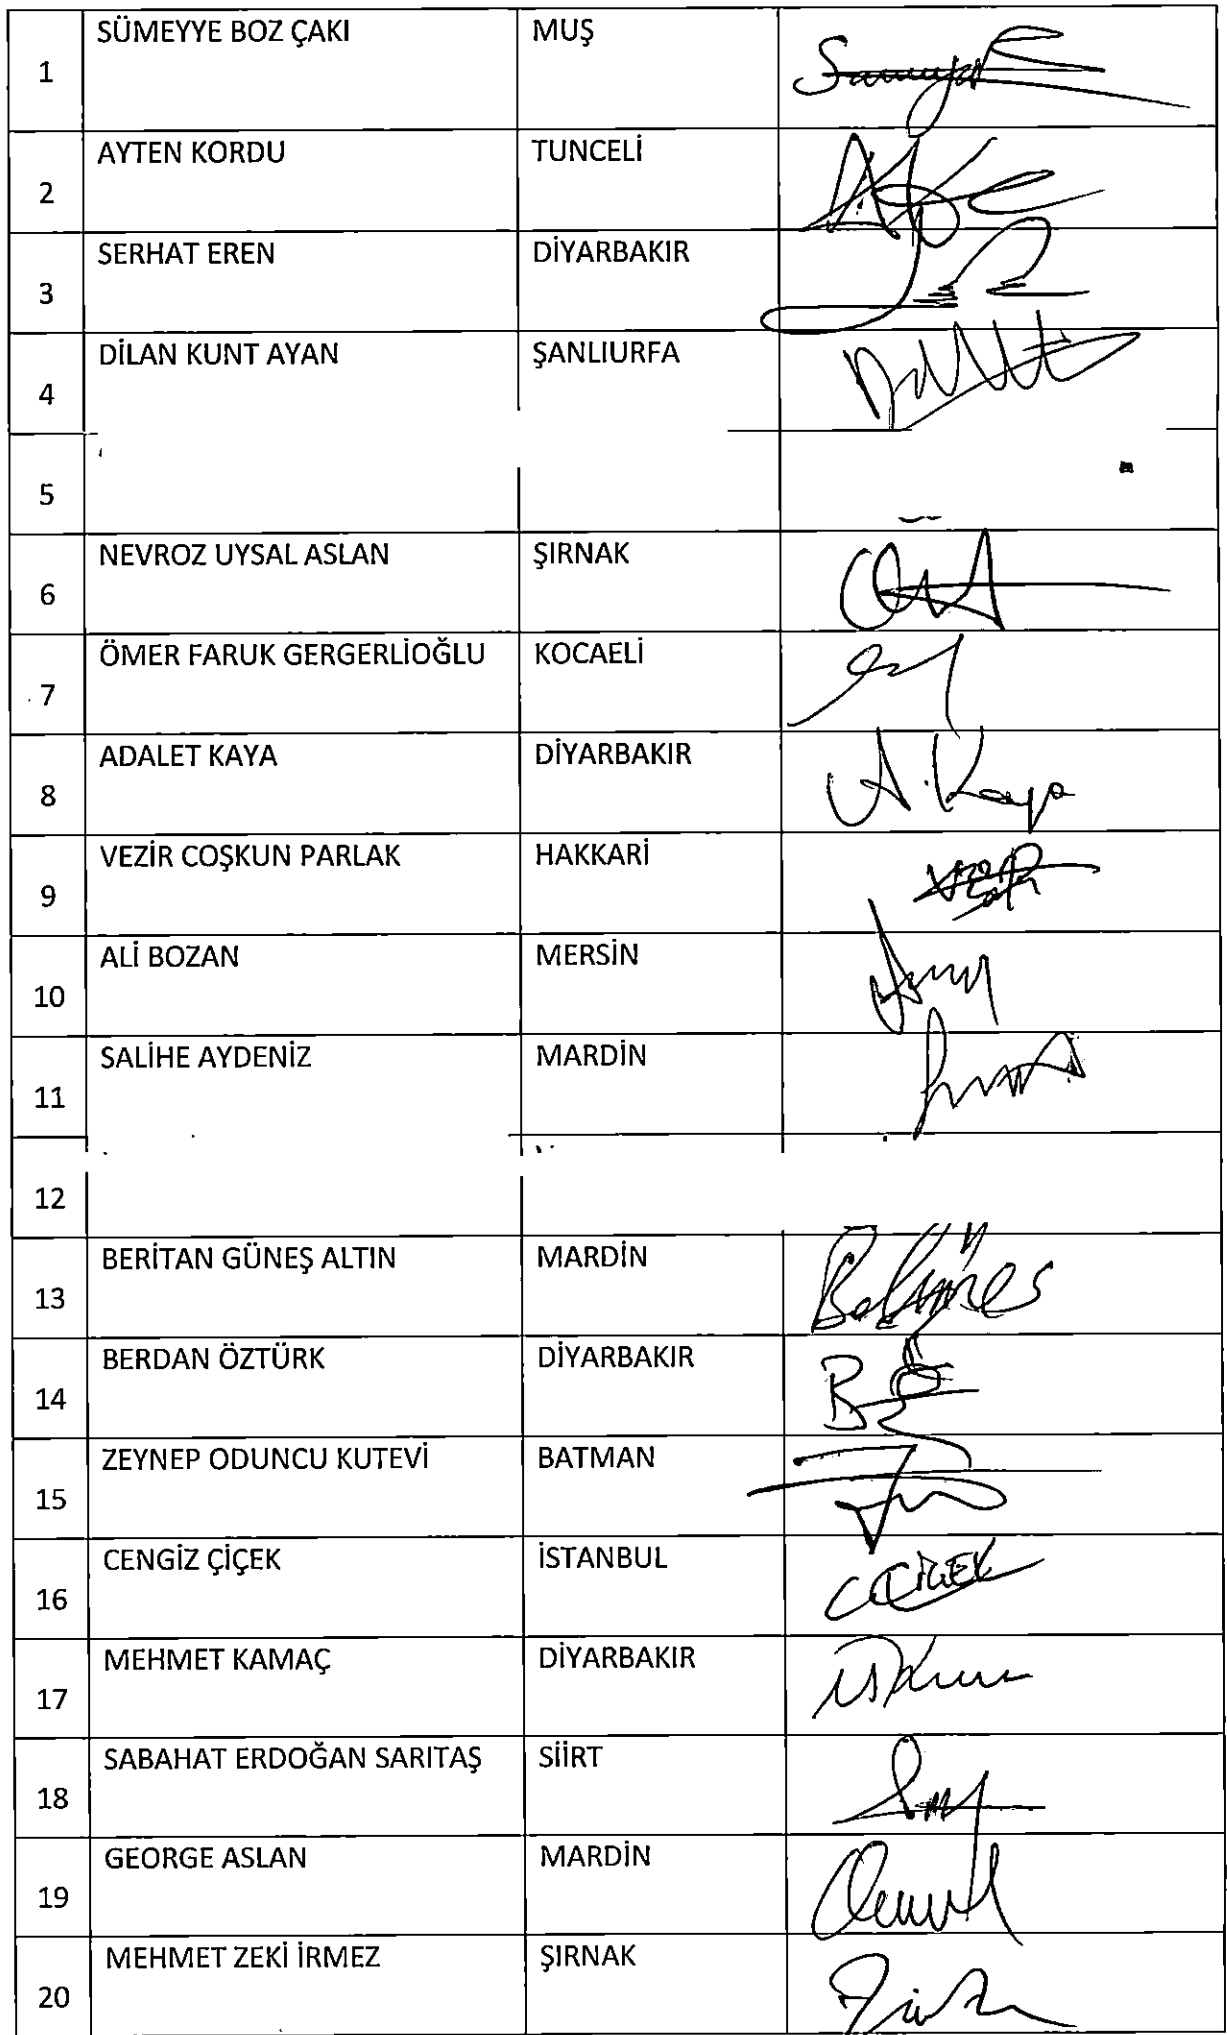 1 SÜMEYYE BOZ ÇAKI MUŞ
2 AYTEN KORDU TUNCELİ
3 SERHAT EREN DİYARBAKIR
4 DİLAN KUNT AYAN ŞANLIURFA
5
6 NEVROZ UYSAL ASLAN ŞIRNAK
7 ÖMER FARUK GERGERLİOĞLU KOCAELİ
8 ADALET KAYA DİYARBAKIR A. Kaya
9 VEZİR COŞKUN PARLAK HAKKARİ
10 ALİ BOZAN MERSİN
11 SALİHE AYDENİZ MARDİN
12
13 BERİTAN GÜNEŞ ALTIN MARDİN
14 BERDAN ÖZTÜRK DİYARBAKIR
15 ZEYNEP ODUNCU KUTEVİ BATMAN
16 CENGİZ ÇİÇEK İSTANBUL
17 MEHMET KAMAÇ DİYARBAKIR
18 SABAHAT ERDOĞAN SARITAŞ SİİRT
19 GEORGE ASLAN MARDİN
20 MEHMET ZEKİ İRMEZ ŞIRNAK